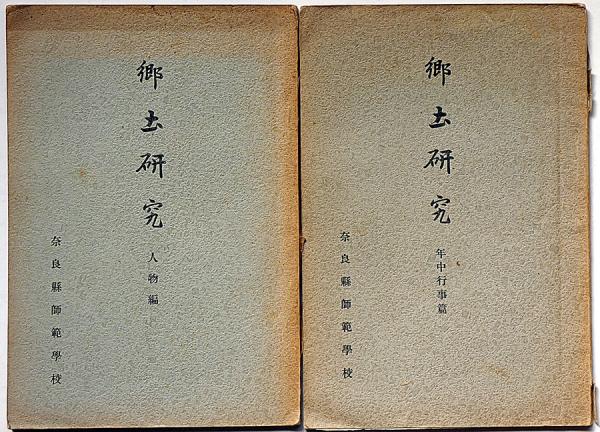 鄕土硏究
人物編
奈良縣師範學校
鄕土硏究
年中行事篇
奈良縣師範學校